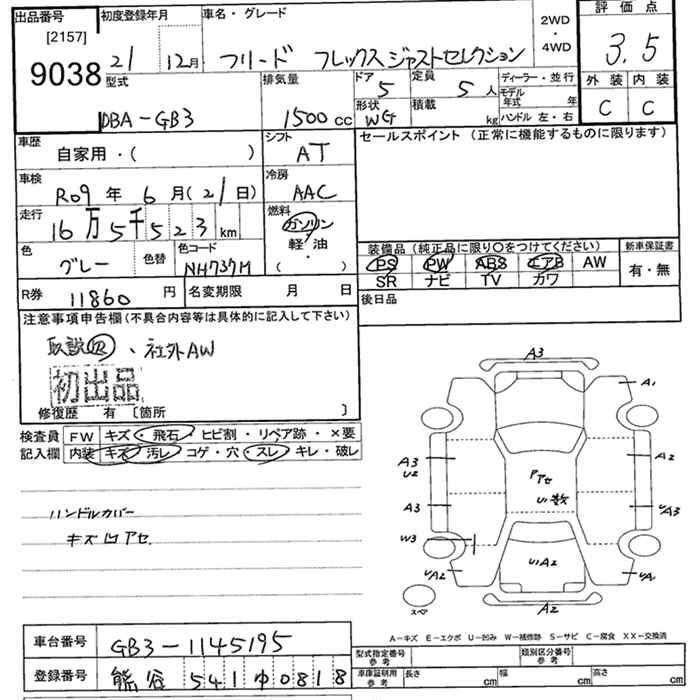 出品番号 初度登録年月 車名・グレード 評価点
[2157] 2WD・4WD
9038 21 12月 フリード フレックスジャストセレクション 3.5
型式 排気量 ドア 定員 ディーラー・並行 外装 内装
5 5人 モデル年式 年
DBA-GB3 1500cc 形状 WG 積載 kg ハンドル 左・右 C C
車歴 シフト セールスポイント(正常に機能するものに限ります)
自家用・( ) AT
車検 冷房
R09年 6月(21日) AAC
走行 燃料
16万5千523km ガソリン
軽油
色 色替 色コード 装備品(純正品に限り○をつけてください) 新車保証書
グレー NH737M ( ・ ) PS PW ABS エアB AW 有・無
SR ナビ TV カワ
R券 11860円 名変期限 月 日 後日品
注意事項申告欄(不具合内容等は具体的に記入して下さい)
取説 、社外AW
初出品
修復歴 有 〔箇所 〕
検査員 FW キズ・飛石・ヒビ割・リペア跡・×要
記入欄 内装 キズ 汚レ コゲ・穴・スレ・キレ・破レ
ハンドルカバー
キズ凹アセ
A3
A1
A3 U2 A2
Pアセ
U1数
A3 UA3
W3
UA2 U1A2 UA1
スペア A2
A-キズ E-エクボ U-凹み W-補修跡 S-サビ C-腐食 XX-交換済
車台番号 GB3-1145195 型式指定番号 参考 類別区分番号 参考
登録番号 熊谷 541 ゆ 0818 車庫証明用 参考 長さ cm 幅 cm 高さ cm